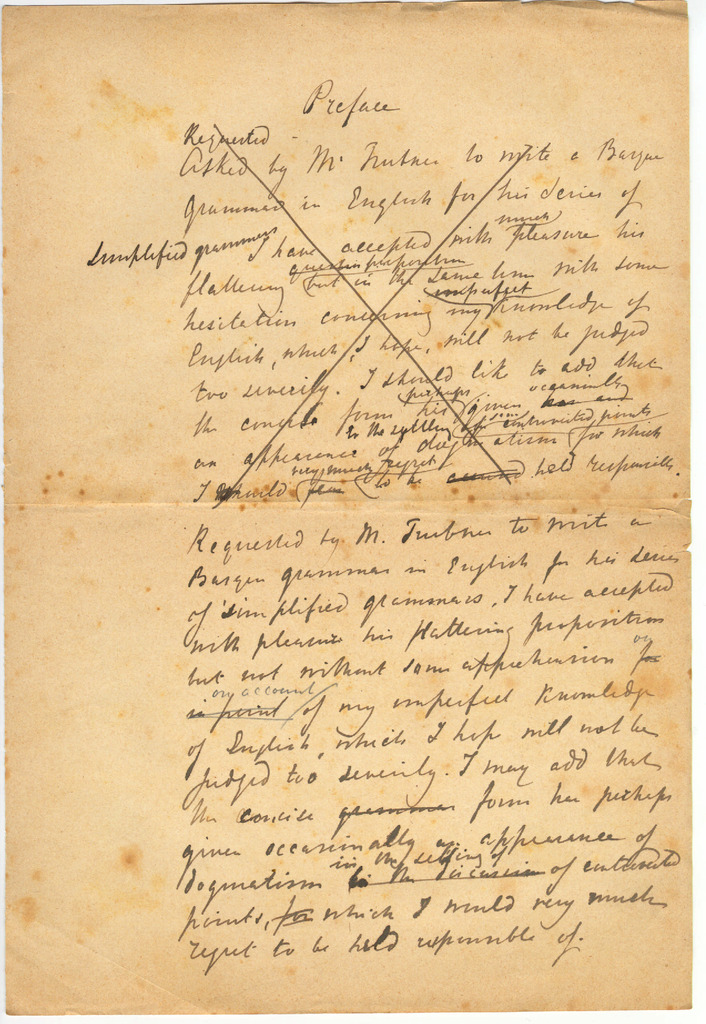 Preface
Requested
Asked by Mr Trubner to write a Basque
grammar in English for his series of
much
simplified grammars I have accepted with pleasure his
proposition
flattering but in the same time with some
imperfect
hesitation concerning my knowledge of
English, which, I hope, will not be judged
too severely. I should like to add that
perhaps occasionally
the concise form has given has and
to the settling of some controverted points
an appearance of dogmatism for which
very much regret
I should fear to be held responsible.
Requested by M. Trubner to write a
Basque grammar in English for his series
of simplified grammars, I have accepted
with pleasure his flattering proposition
but not without some apprehension for
on
on account
in point of my imperfect knowledge
of English, which I hope will not be
judged too severely. I may add that
the concise grammar form has perhaps
given occasionally an appearance of
in the settling of
dogmatism in the discussion of controverted
points, for which I would very much
regret to be held responsible of.